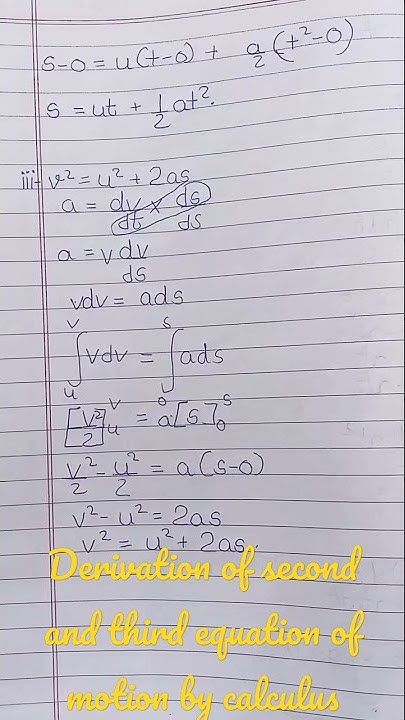 s-0 = u(t-0) + a/2 (t²-0)
s = ut + 1/2 at².
iii- v² = u² + 2as
a = dv/dt × ds/ds
a = v dv/ds
vdv = ads
∫ᵤᵛ vdv = ∫₀ˢ ads
[v²/2]ᵤᵛ = a[s]₀ˢ
v²/2 - u²/2 = a(s-0)
v² - u² = 2as
v² = u² + 2as.
Derivation of second
and third equation of
motion by calculus